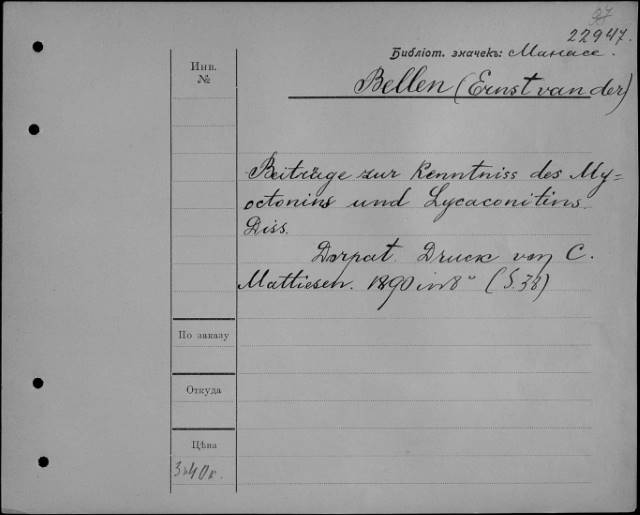 22947.
Библіот. значекъ: Манасе.
Инв.
№
Bellen (Ernst van der)
Beiträge zur Kenntniss des My=
octonins und Lycaconitins
Diss.
Dorpat. Druck von C.
Mattiesen. 1890 in 8° (S. 38)
По заказу
Откуда
Цѣна
40 к.